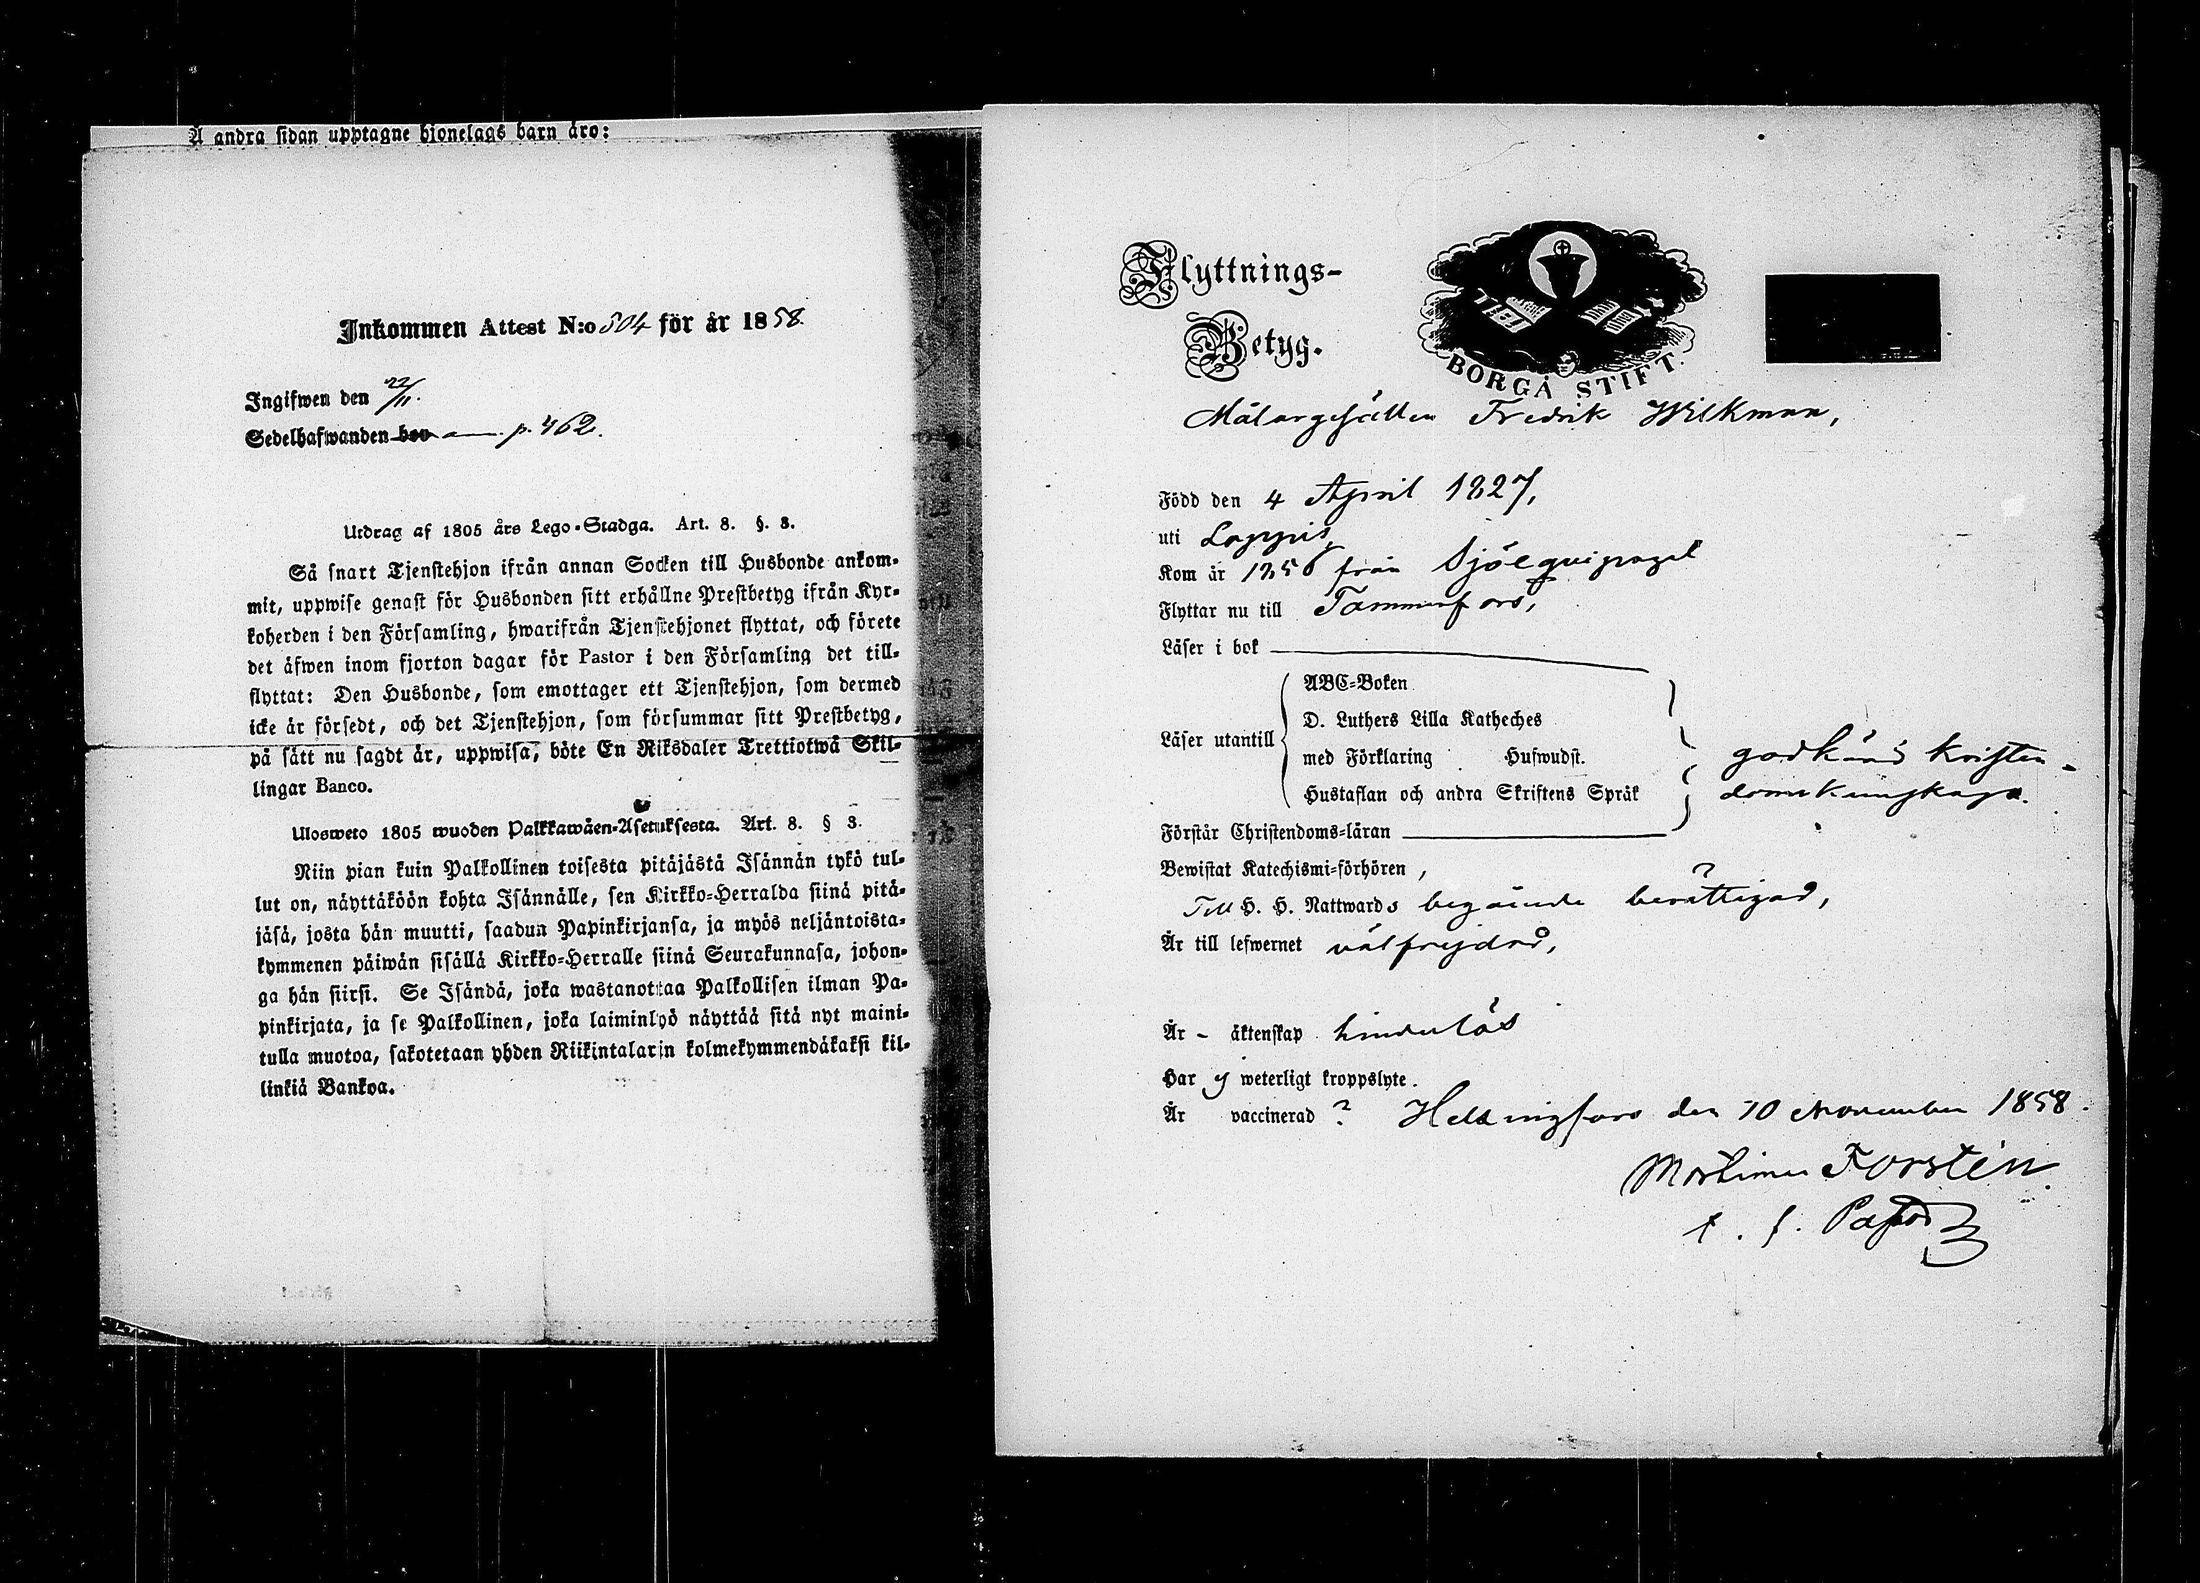 Å andra sidan upptagne hjonelags barn äro:
Inkommen Attest N:o 504 för år 1858.
Ingifwen den 22/11.
Sedelhafwanden bor p. 462.
Utdrag af 1805 års Lego-Stadga. Art. 8. §. 3.
Så snart Tjenstehjon ifrån annan Socken till Husbonde ankom-
mit, uppwise genast för Husbonden sitt erhållne Prestbetyg ifrån Kyr-
koherden i den Församling, hwarifrån Tjenstehjonet flyttat, och förete
det äfwen inom fjorton dagar för Pastor i den Församling det till-
flyttat: Den Husbonde, som emottager ett Tjenstehjon, som dermed
icke är försedt, och det Tjenstehjon, som försummar sitt Prestbetyg,
på sätt nu sagdt är, uppwisa, böte En Riksdaler Trettiotwå Skil-
lingar Banco.
Ulosweto 1805 wuoden Palkkawäen-Asetuksesta. Art. 8. § 3.
Niin pian kuin Palkollinen toisesta pitäjästä Isännän tykö tul-
lut on, näyttäköön kohta Isännälle, sen Kirkko-Herralda siinä pitä-
jäsä, josta hän muutti, saadun Papinkirjansa, ja myös neljäntoista-
kymmenen päiwän sisällä Kirkko-Herralle siinä Seurakunnasa, johon-
ga hän siirsi. Se Isändä, joka wastanottaa Palkollisen ilman Pa-
pinkirjata, ja se Palkollinen, joka laiminlyö näyttää sitä nyt maini-
tulla muotoa, sakotetaan yhden Riikintalarin kolmekymmendäkaksi kil-
linkiä Bankoa.
Flyttnings-
Betyg.
BORGÅ STIFT.
Målargesällen Fredrik Wilkman,
Född den 4 April 1827,
uti Loppis,
Kom år 1856 från
Flyttar nu till Tammerfors,
Läser i bok
Läser utantill
ABC-Boken
D. Luthers Lilla Katheches
med Förklaring Hufwudst.
Hustaflan och andra Skriftens Språk
godkänd kristen-
domskunskap.
Förstår Christendoms-läran
Bewistat Katechismi-förhören, ?
Till H. H. Nattwards begående berättigad,
Är till lefwernet välfrejdad,
Är - äktenskap hinderlös
Har ej weterligt kroppslyte.
Är vaccinerad ? Helsingfors den 10 November 1858.
Mortimer Forstén
t. f. Pastor